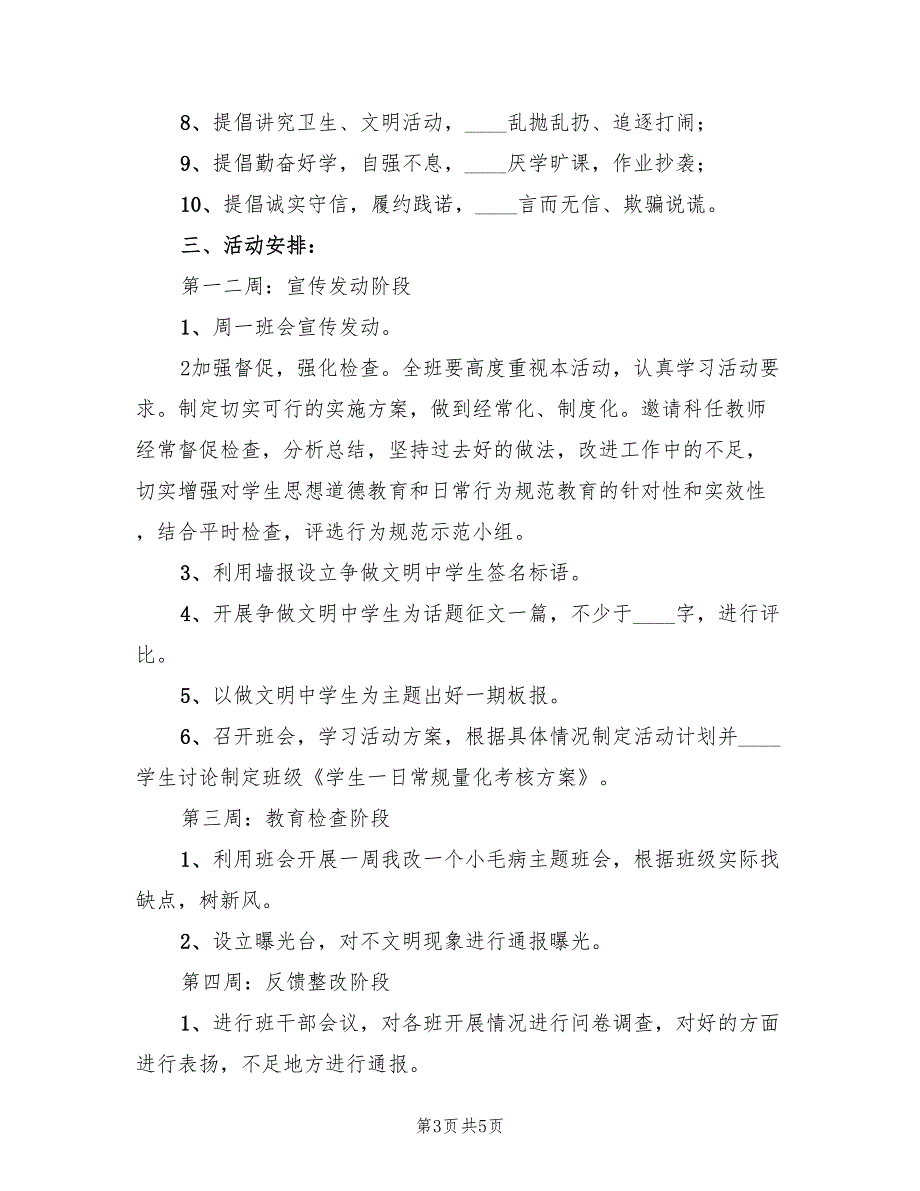 8、提倡讲究卫生、文明活动，____乱抛乱扔、追逐打闹；
9、提倡勤奋好学，自强不息，____厌学旷课，作业抄袭；
10、提倡诚实守信，履约践诺，____言而无信、欺骗说谎。
三、活动安排：
第一二周：宣传发动阶段
1、周一班会宣传发动。
2加强督促，强化检查。全班要高度重视本活动，认真学习活动要
求。制定切实可行的实施方案，做到经常化、制度化。邀请科任教师
经常督促检查，分析总结，坚持过去好的做法，改进工作中的不足，
切实增强对学生思想道德教育和日常行为规范教育的针对性和实效性
，结合平时检查，评选行为规范示范小组。
3、利用墙报设立争做文明中学生签名标语。
4、开展争做文明中学生为话题征文一篇，不少于____字，进行评
比。
5、以做文明中学生为主题出好一期板报。
6、召开班会，学习活动方案，根据具体情况制定活动计划并____
学生讨论制定班级《学生一日常规量化考核方案》。
第三周：教育检查阶段
1、利用班会开展一周我改一个小毛病主题班会，根据班级实际找
缺点，树新风。
2、设立曝光台，对不文明现象进行通报曝光。
第四周：反馈整改阶段
1、进行班干部会议，对各班开展情况进行问卷调查，对好的方面
进行表扬，不足地方进行通报。
第3页共5页